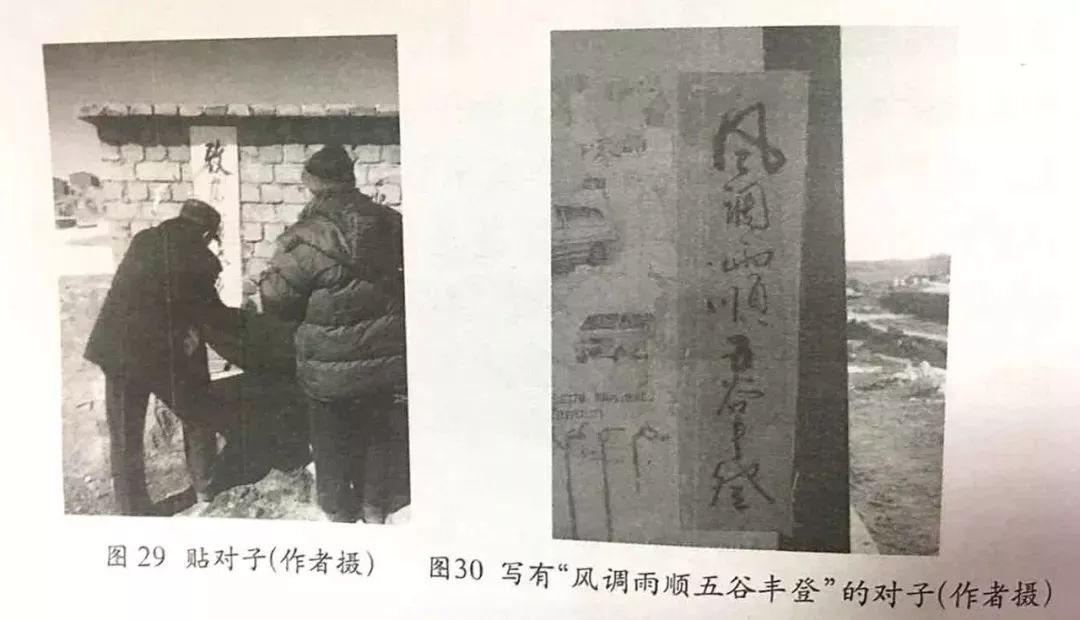 敬
风调雨顺五谷丰登
图 29 贴对子(作者摄)
图30 写有“风调雨顺五谷丰登”的对子(作者摄)